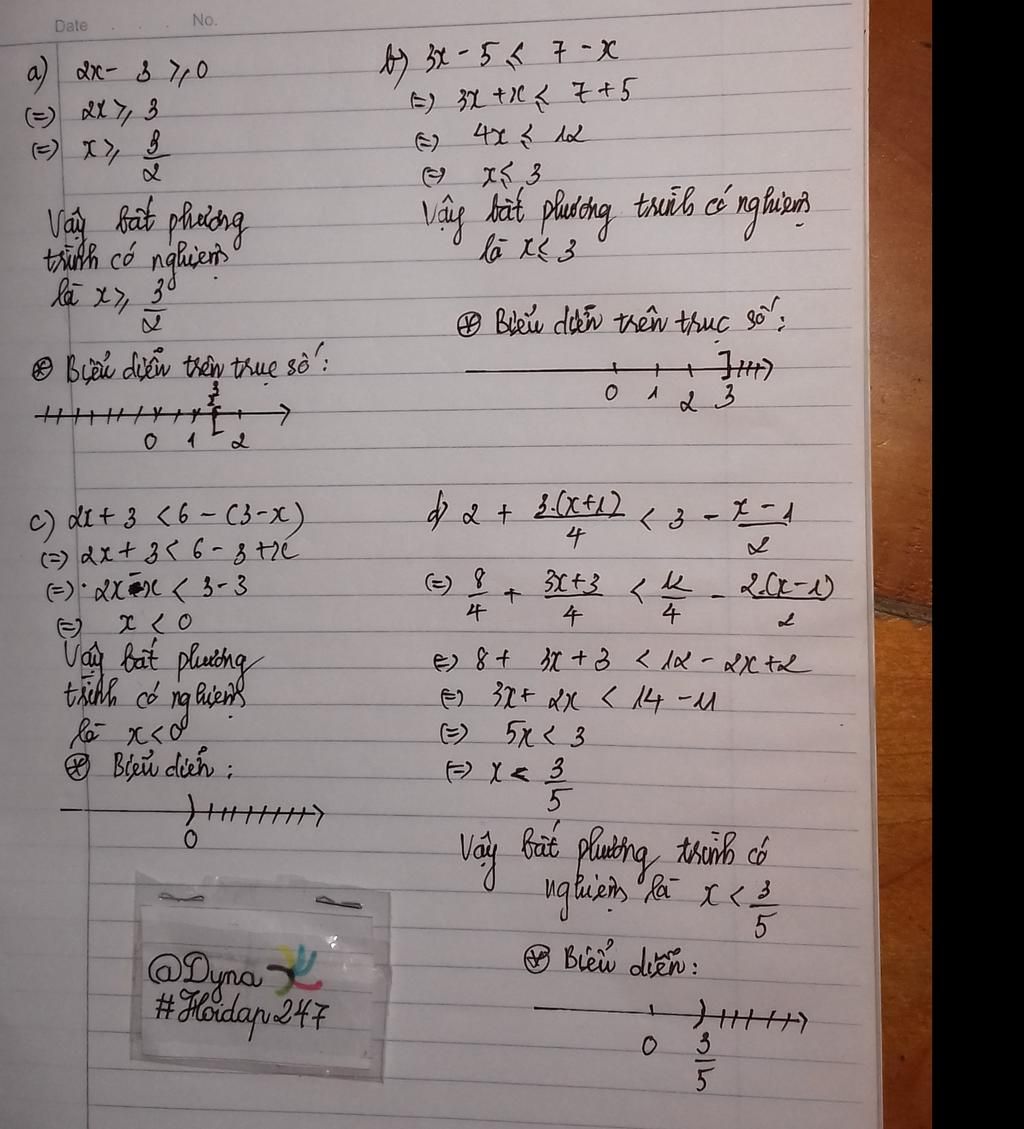 Date . . . No.
a) 2x - 3 ≥ 0
(=) 2x ≥ 3
(=) x ≥ 3/2
Vậy bất phương
trình có nghiệm
là x ≥ 3/2
⊛ Biểu diễn trên trục số:
3/2
0 1 [ 2
b) 3x - 5 ≤ 7 - x
(=) 3x + x ≤ 7 + 5
(=) 4x ≤ 12
(=) x ≤ 3
Vậy bất phương trình có nghiệm
là x ≤ 3
⊛ Biểu diễn trên trục số:
]
0 1 2 3
c) 2x + 3 < 6 - (3 - x)
(=) 2x + 3 < 6 - 3 + x
(=) 2x - x < 3 - 3
(=) x < 0
Vậy bất phương
trình có nghiệm
là x < 0
⊛ Biểu diễn:
)
0
d) 2 + 3.(x+1)/4 < 3 - x - 1/2
(=) 8/4 + 3x+3/4 < 12/4 - 2.(x-1)/2
(=) 8 + 3x + 3 < 12 - 2x + 2
(=) 3x + 2x < 14 - 11
(=) 5x < 3
(=) x < 3/5
Vậy bất phương trình có
nghiệm là x < 3/5
⊛ Biểu diễn:
)
0 3/5
@Dyna
#Hoidap247